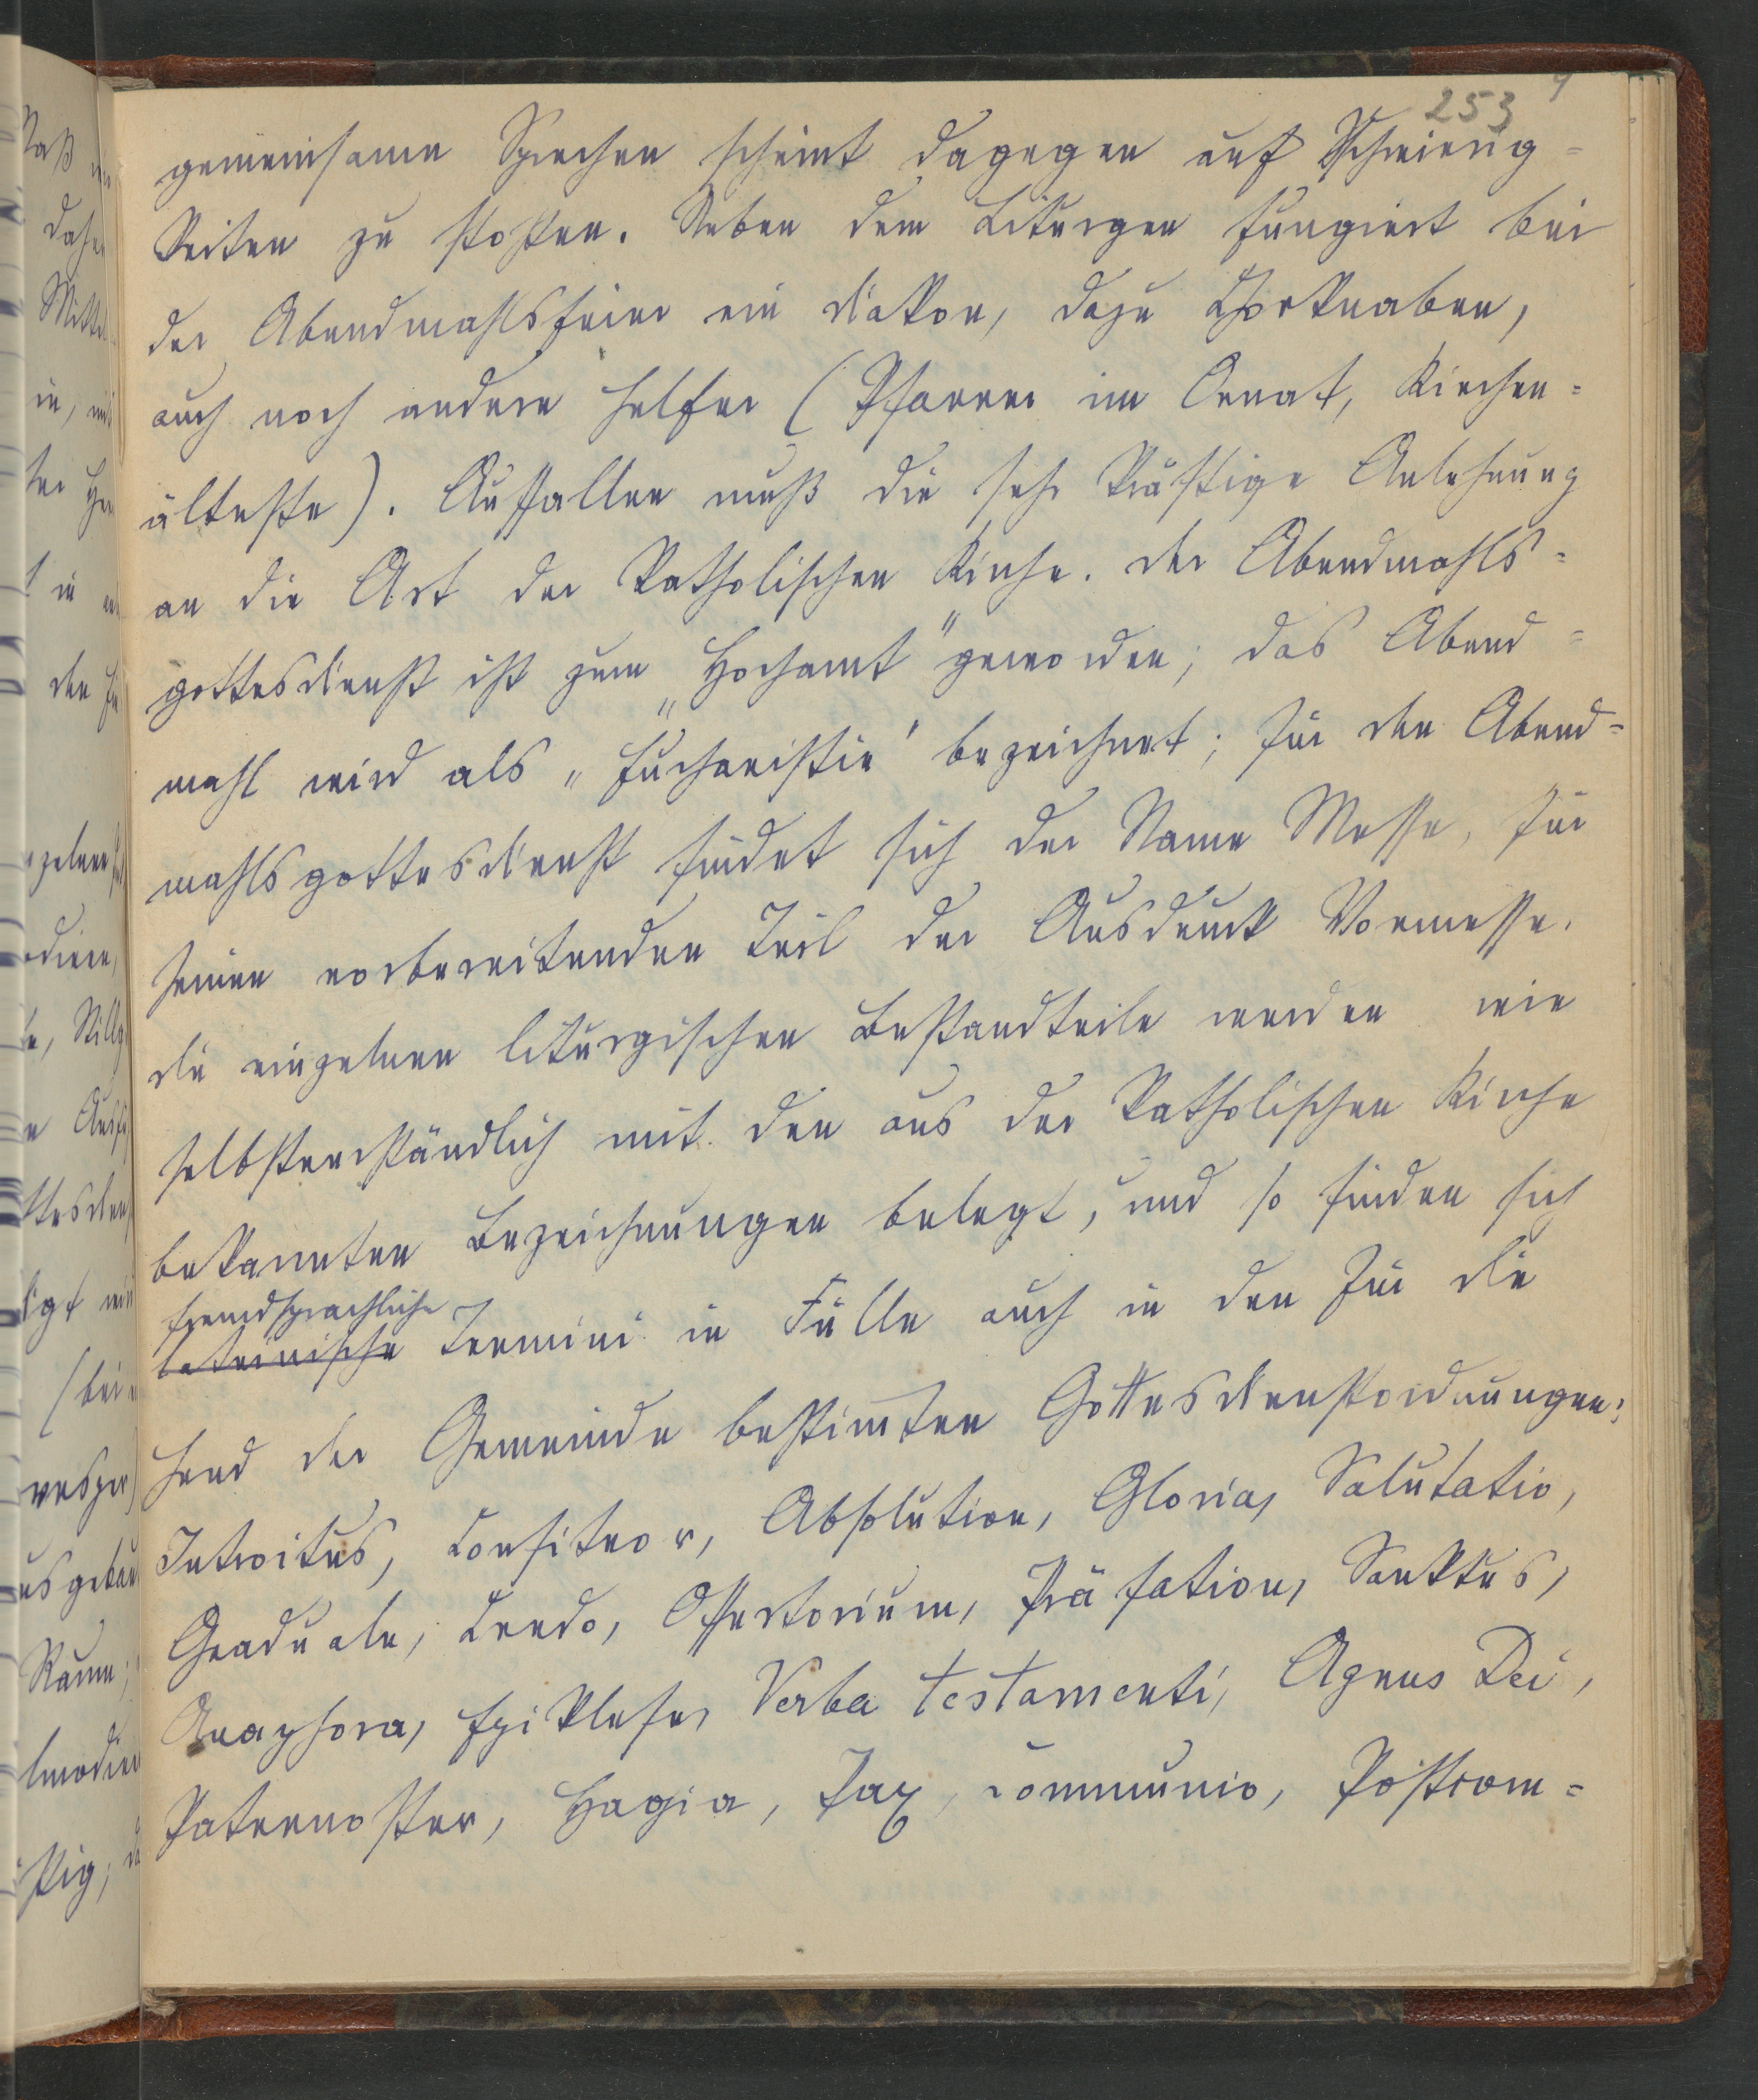 253
gemeinsame Sprechen scheint dagegen auf Schwierig=
keiten zu stoßen. Neben dem Liturgen fungiert bei
der Abendmahlsfeier ein Diakon, dazu Chorknaben,
auch noch andere Helfer (Pfarrer im Ornat, Kirchen=
älteste). Auffallen muß die sehr kräftige Anlehnung
an die Art der katholischen Kirche. Der Abendmahls=
gottesdienst ist zum „Hochamt“ geworden; das Abend=
mahl wird als „Eucharistie“ bezeichnet; für den Abend=
mahlsgottesdienst findet sich der Name Messe, für
seinen vorbereitenden Teil der Ausdruck Vormesse.
Die einzelnen liturgischen Bestandteile werden wie
selbstverständlich mit den aus der katholischen Kirche
bekannten Bezeichnungen belegt, und so finden sich
fremdsprachliche
lateinische Termini in Fülle auch in den für die
Hand der Gemeinde bestimmten Gottesdienstordnungen:
Introitus, Confiteor, Absolution, Gloria, Salutatio,
Graduale, Credo, Offertorium, Präfation, Sanktus,
Anaphora, Epiklese, Verba testamenti, Agnus Dei,
Paternoster, Hagia, Pax, Communio, Postcom=